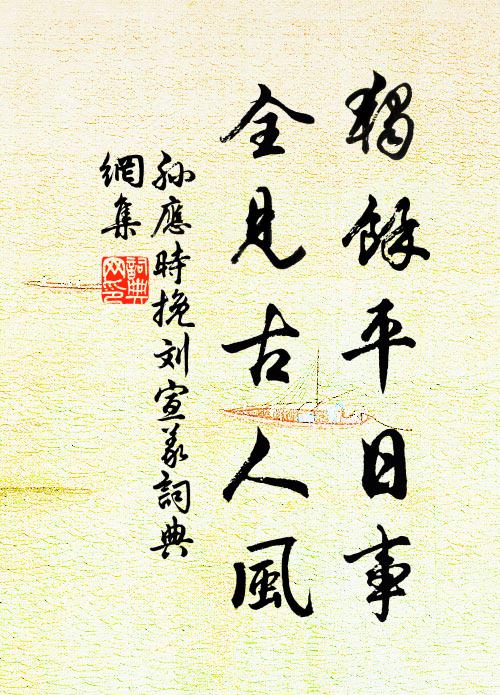 獨餘平日事
全見古人風
孙應時挽刘宣義詞典
網集
詞典網印